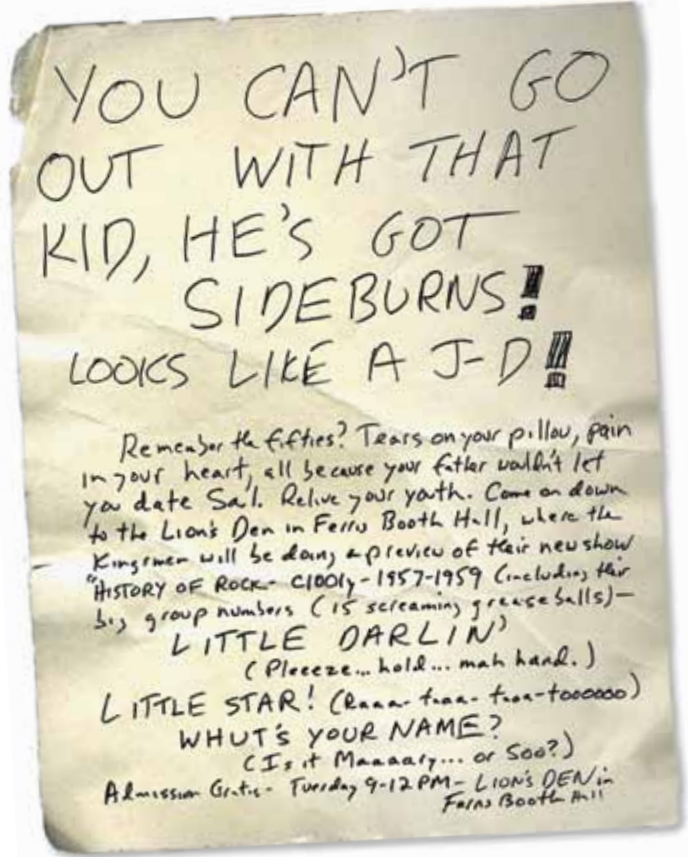 YOU CAN'T GO
OUT WITH THAT
KID, HE'S GOT
SIDEBURNS!
LOOKS LIKE A J-D!
Remember the fifties? Tears on your pillow, pain
in your heart, all because your father wouldn't let
you date Sal. Relive your youth. Come on down
to the Lion's Den in Ferris Booth Hall, where the
Kingsmen will be doing a preview of their new show
"HISTORY OF ROCK- C1001y - 1957-1959 (including their
big group numbers (15 screaming greaseballs)—
LITTLE DARLIN'
(Pleeeze... hold... mah hand.)
LITTLE STAR! (Raaa-taaa-taaa-toooooo)
WHUT'S YOUR NAME?
(Is it Maaaary... or Soo?)
Admission Gratis - Tuesday 9-12 PM - LION'S DEN in
Ferris Booth Hall